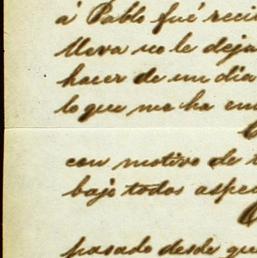 á Pablo fué reci
lleva no le deja
hacer de un dia
lo que me ha em
con motivo de
bajo todos aspec
pasado desde que